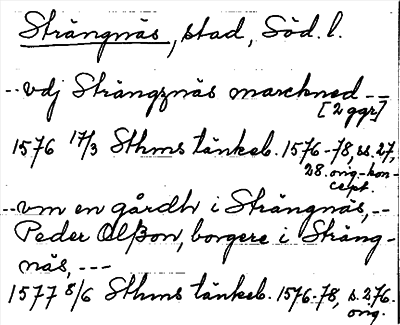 Strängnäs, stad, Söd. l.
-- vdj Strängznäs marckned --
[2 ggr]
1576 17/3 Sthms tänkeb. 1576-78, ss. 27,
28. orig.-kon-
cept.
-- vm en gårdh i Strängnäs, --
Peder Olßon, borgere i Sträng-
näs, ---
1577 8/6 Sthms tänkeb. 1576-78, s. 276.
orig.